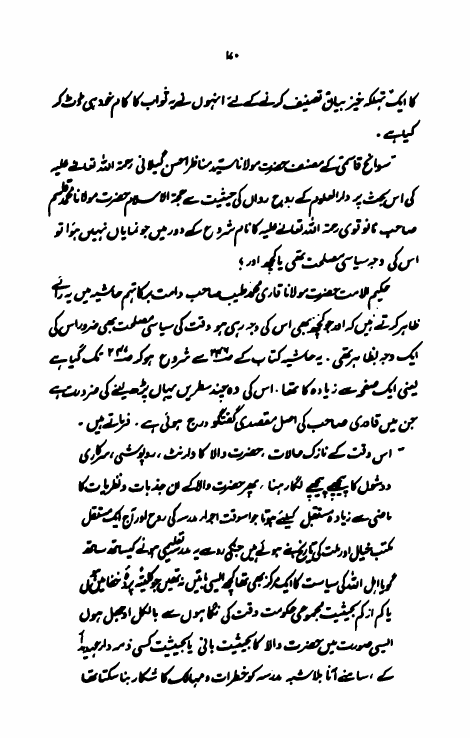 ۱۸۰
کا ایک تہلکہ خیز بیان تصنیف کرنے کے لئے انہوں نے یہ ثواب کا کام خود ہی ڈٹ کر
کیا ہے۔
سوانح قاسمی کے مصنف حضرت مولانا سید مناظر احسن گیلانی رحمۃ اللہ تعالےٰ علیہ
کی اس بحث پر دارالعلوم کے روح رواں کی حیثیت سے حجۃ الاسلام حضرت مولانا محمد قاسم
صاحب نانوتوی رحمۃ اللہ تعالےٰ علیہ کا نام شروع کے دور میں جو نمایاں نہیں ہوا تو
اس کی وجہ سیاسی مصلحت تھی یا کچھ اور ؟
حکیم الامت حضرت مولانا قاری محمد طیب صاحب دامت برکاتہم حاشیہ میں یہ رائے
ظاہر کرتے ہیں کہ اور جو کچھ بھی اس کی وجہ رہی ہو وقت کی سیاسی مصلحت بھی ضرور اس کی
ایک وجہ بظاہر تھی۔ یہ حاشیہ کتاب کے سے شروع ہو کر تک گیا ہے
یعنی ایک صفحہ سے زیادہ کا تھا۔ اس کی وہ چند سطریں یہاں پڑھ لینے کی ضرورت ہے
جن میں قاری صاحب کی اصل مقصدی گفتگو درج ہوئی ہے۔ فرماتے ہیں۔
" اس وقت کے نازک حالات، حضرت والا کا وارنٹ، روپوشی، سرکاری
دوشوں کا پیچھے پیچھے لگا رہنا، پھر حضرت والا کے ان جذبات و نظریات کا
ماضی سے زیادہ مستقبل کیلئے ہونا جو اسوقت اجزاء مدرسہ کی روح اور آج ایک مستقل
مکتب خیال اور ملت کی تاریخ بنے ہوئے ہیں جنکی رو سے یہ مدرسہ تعلیمی ہونے کیساتھ ساتھ
گویا اہل اللہ کی سیاست کا ایک مرکز بھی تھا کچھ ایسی باتیں نہ تھیں جو کلیۃً پردۂ خفا میں ہوں
یا کم از کم بحیثیت مجموعی حکومت وقت کی نگاہوں سے بالکل اوجھل ہوں
ایسی صورت میں حضرت والا کا بحیثیت بانی یا بحیثیت کسی ذمہ دار عہدیدار
کے، سامنے آنا بلاشبہ مدرسہ کو خطرات و مہالک کا شکار بنا سکتا تھا